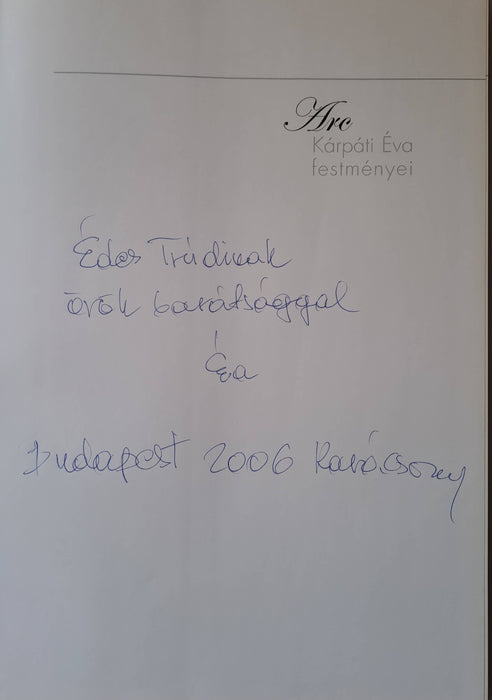 Arc
Kárpáti Éva
festményei
Édes Trúdinak
örök barátsággal
Éva
Budapest 2006 Karácsony